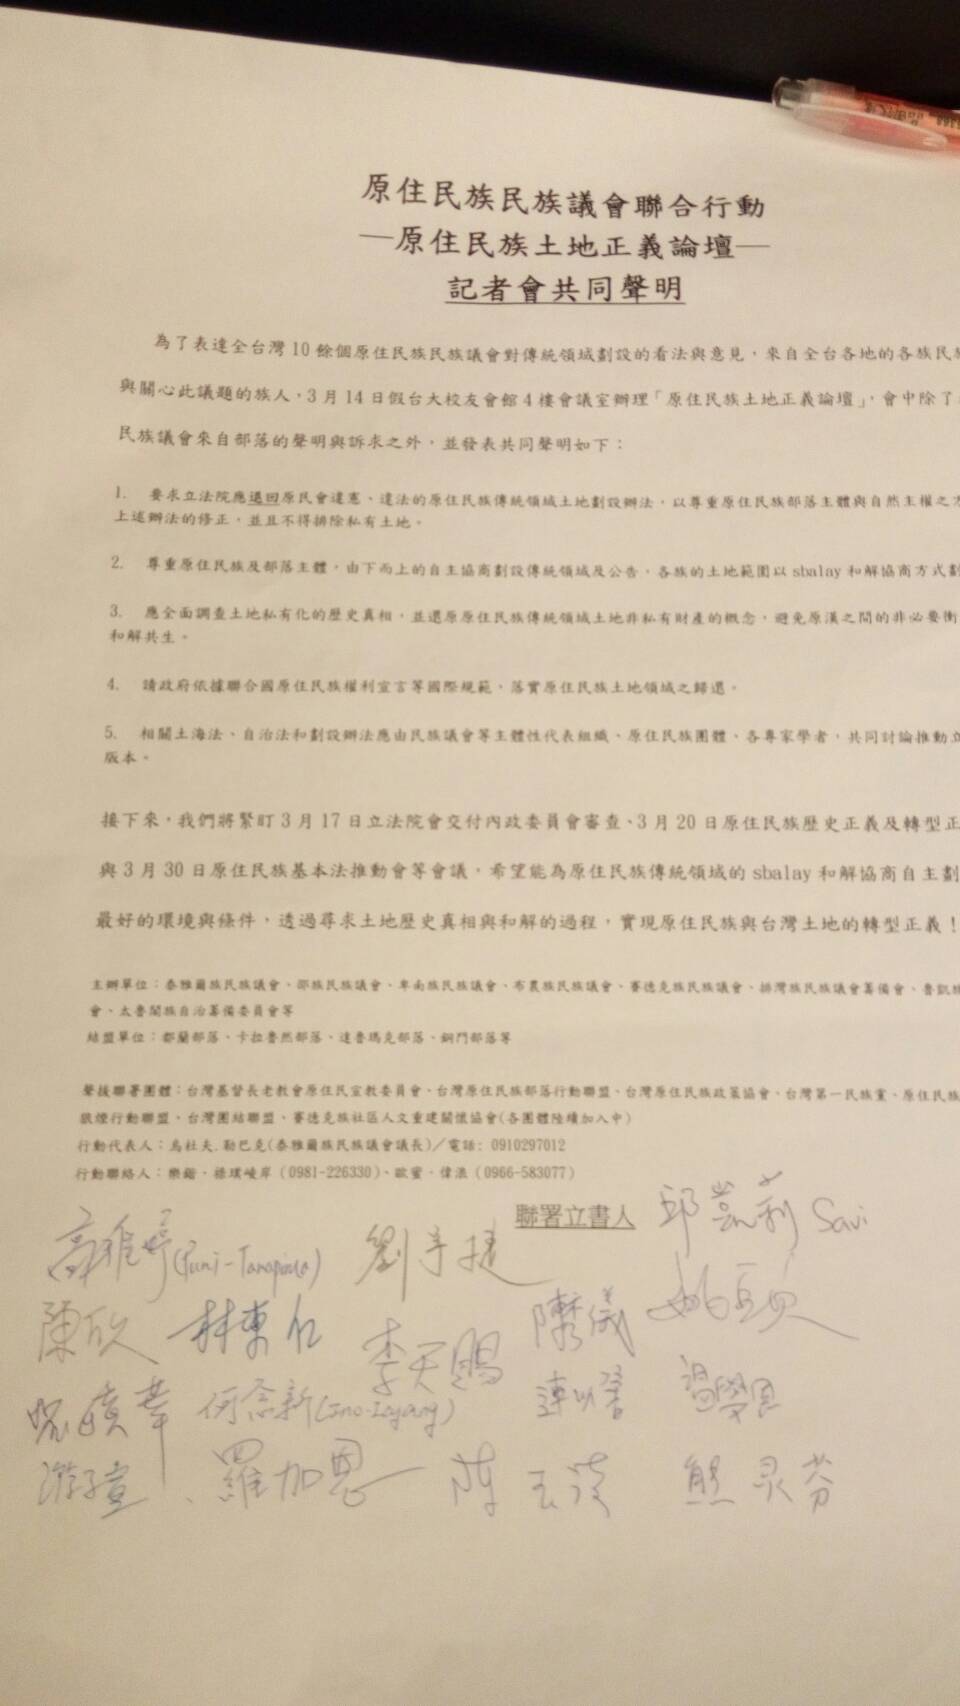 原住民族民族議會聯合行動
—原住民族土地正義論壇—
記者會共同聲明
為了表達全台灣10餘個原住民族民族議會對傳統領域劃設的看法與意見，來自全台各地的各族民
與關心此議題的族人，3月14日假台大校友會館4樓會議室辦理「原住民族土地正義論壇」，會中除了
民族議會來自部落的聲明與訴求之外，並發表共同聲明如下：
1. 要求立法院應退回原民會違憲、違法的原住民族傳統領域土地劃設辦法，以尊重原住民族部落主體與自然主權之
上述辦法的修正，並且不得排除私有土地。
2. 尊重原住民族及部落主體，由下而上的自主協商劃設傳統領域及公告，各族的土地範圍以sbalay和解協商方式劃
3. 應全面調查土地私有化的歷史真相，並還原原住民族傳統領域土地非私有財產的概念，避免原漢之間的非必要衝
和解共生。
4. 請政府依據聯合國原住民族權利宣言等國際規範，落實原住民族土地領域之歸還。
5. 相關土海法、自治法和劃設辦法應由民族議會等主體性代表組織、原住民族團體、各專家學者，共同討論推動立
版本。
接下來，我們將緊盯3月17日立法院會交付內政委員會審查、3月20日原住民族歷史正義及轉型正
與3月30日原住民族基本法推動會等會議，希望能為原住民族傳統領域的sbalay和解協商自主劃
最好的環境與條件，透過尋求土地歷史真相與和解的過程，實現原住民族與台灣土地的轉型正義！
主辦單位：泰雅爾族民族議會、邵族民族議會、卑南族民族議會、布農族民族議會、賽德克族民族議會、排灣族民族議會籌備會、魯凱族
會、太魯閣族自治籌備委員會等
結盟單位：都蘭部落、卡拉魯然部落、達魯瑪克部落、銅門部落等
聲援聯署團體：台灣基督長老教會原住民宣教委員會、台灣原住民族部落行動聯盟、台灣原住民族政策協會、台灣第一民族黨、原住民族
狼煙行動聯盟、台灣團結聯盟、賽德克族社區人文重建關懷協會(各團體陸續加入中)
行動代表人：烏杜夫.勒巴克(泰雅爾族民族議會議長)／電話: 0910297012
行動聯絡人：樂鍇．祿璞崚岸 (0981-226330)、歐蜜．偉浪 (0966-583077)
聯署立書人 邱凱莉 Savi
高雅婷 劉子捷
陳欣 林東 儀
李天賜
何念新
游子萱 羅加恩 陳 熊灵芬